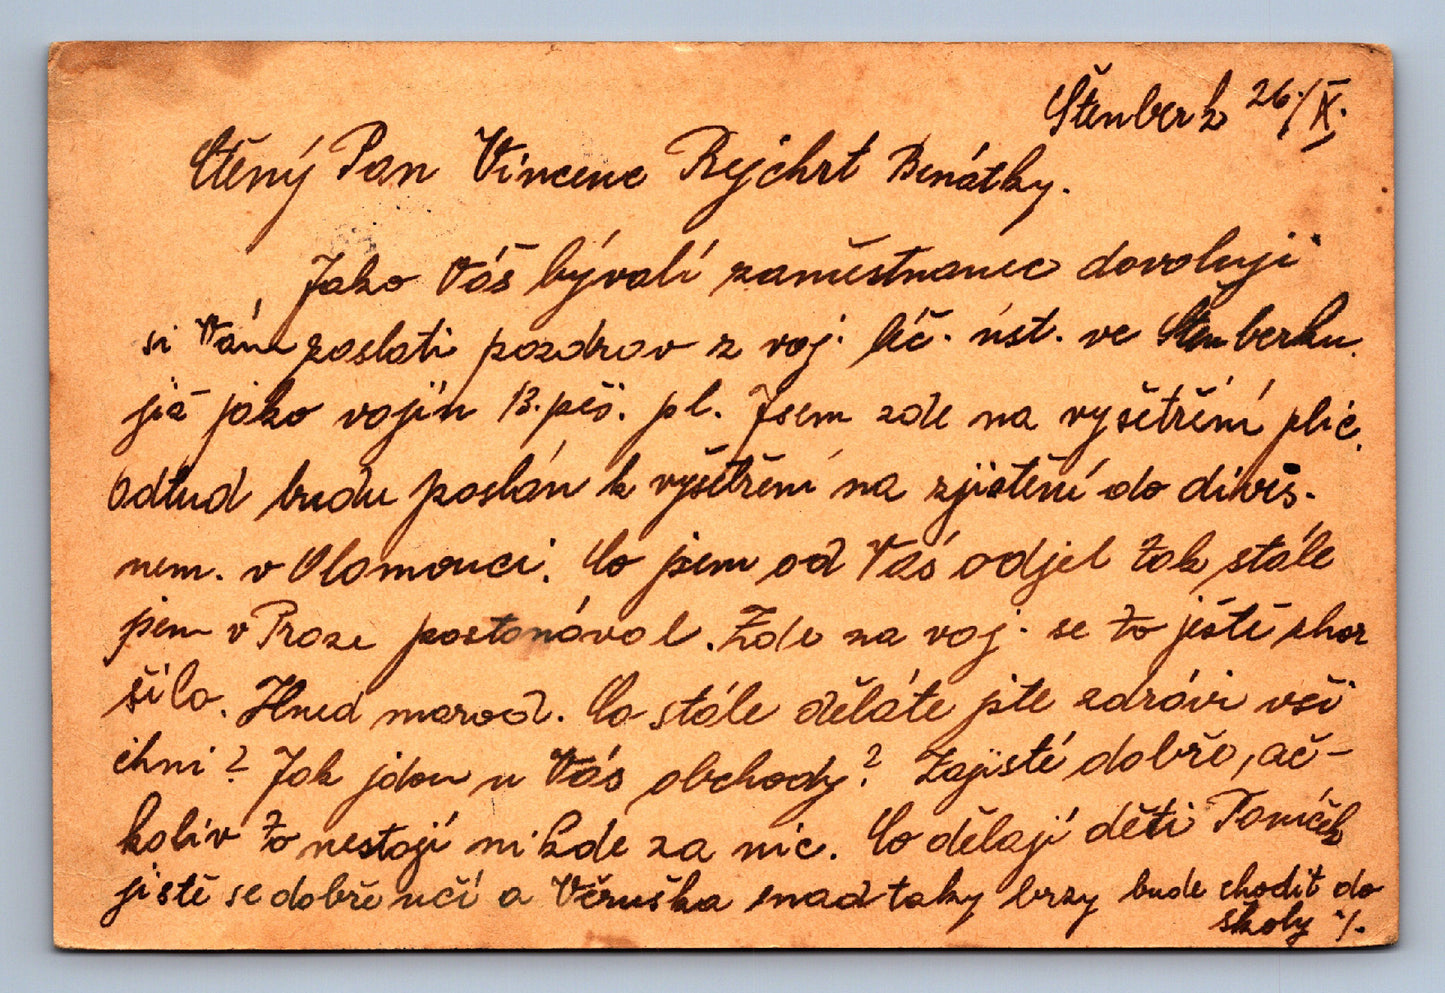 Štenberk 26./IX.
Ctěný Pan Vincenc Rejchrt Benátky.
Jako Váš bývalí zaměstnanec dovoluji
si Vám zaslati pozdrav z voj. léč. úst. ve Štenberku
již jako vojín 13. pěš. pl. Jsem zde na vyšetření plic.
Odtud budu poslán k vyšetření na zjištění do divis.
nem. v Olomouci. Co jsem od Vás odjel tak stále
jsem v Praze postonával. Zde na voj. se to ještě zhor
šilo. Hned marod. Co stále děláte jste zdrávi vši
chni? Jak jdou u Vás obchody? Zajisté dobře, ač-
koliv to nestojí nikde za nic. Co dělají děti Toníček
jistě se dobře učí a Věruška snad taky brzy bude chodit do
školy ·/.